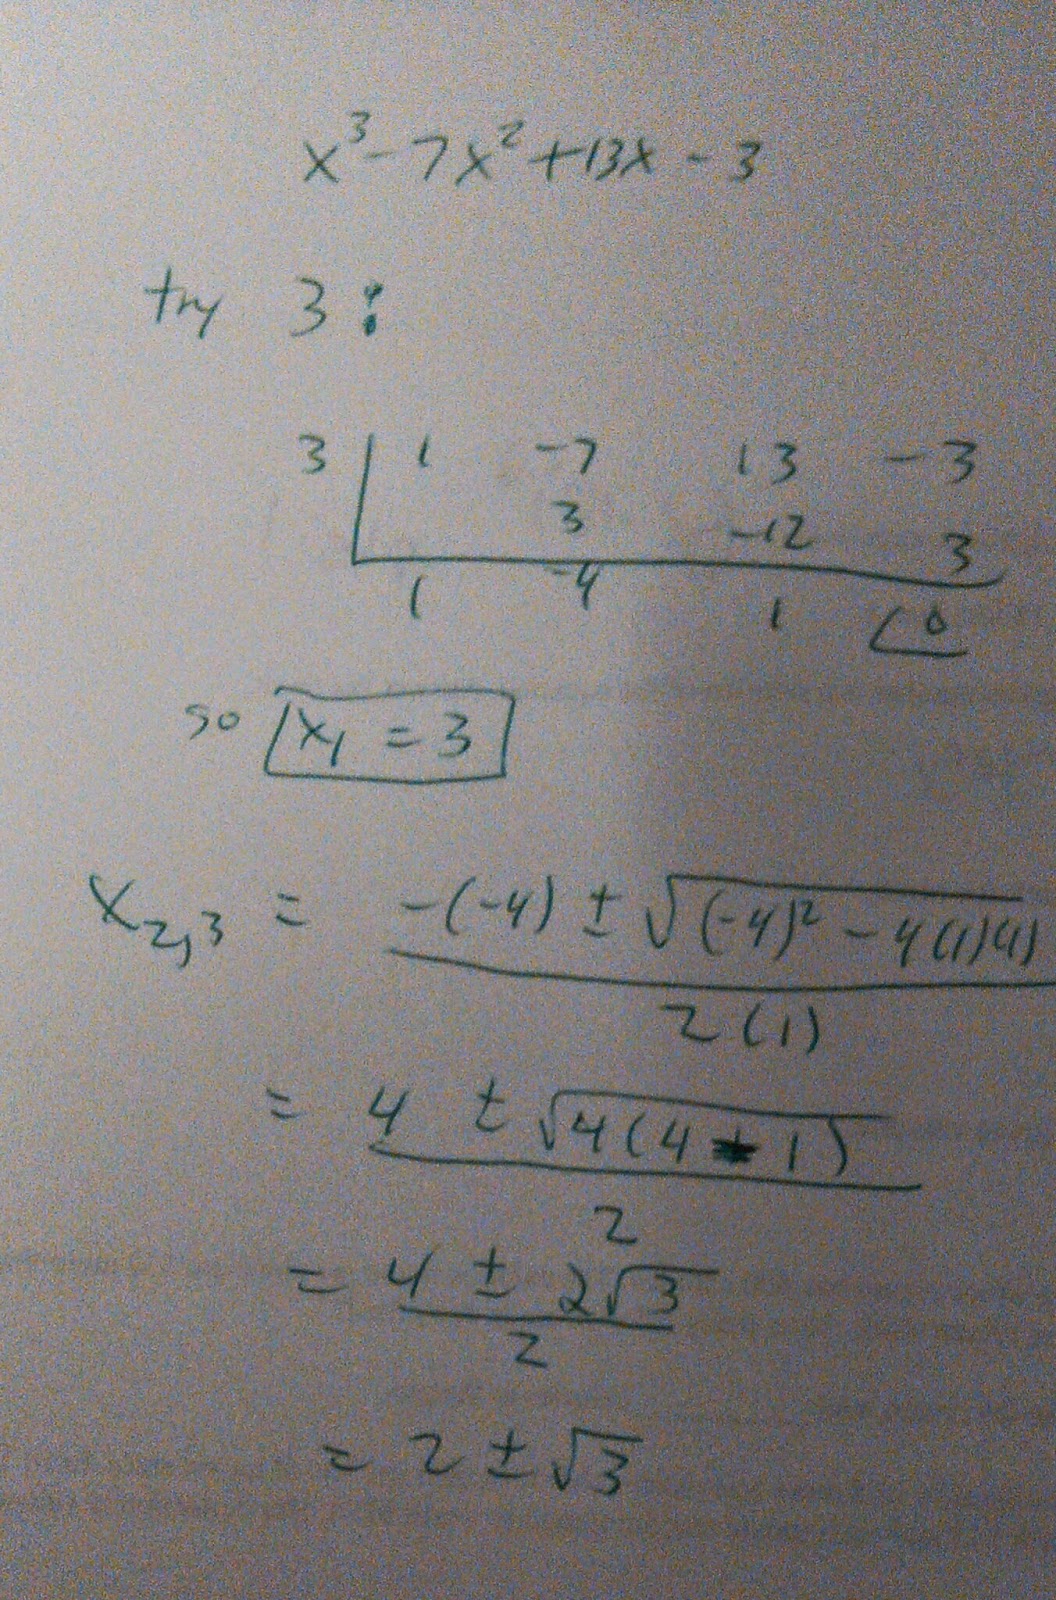 x³ - 7x² + 13x - 3
try 3:
3 | 1 -7 13 -3
3 -12 3
1 -4 1 0
so x₁ = 3
x₂,₃ = -(-4) ± √(-4)² - 4(1)(1)
2(1)
= 4 ± √4(4 - 1)
2
= 4 ± 2√3
2
= 2 ± √3